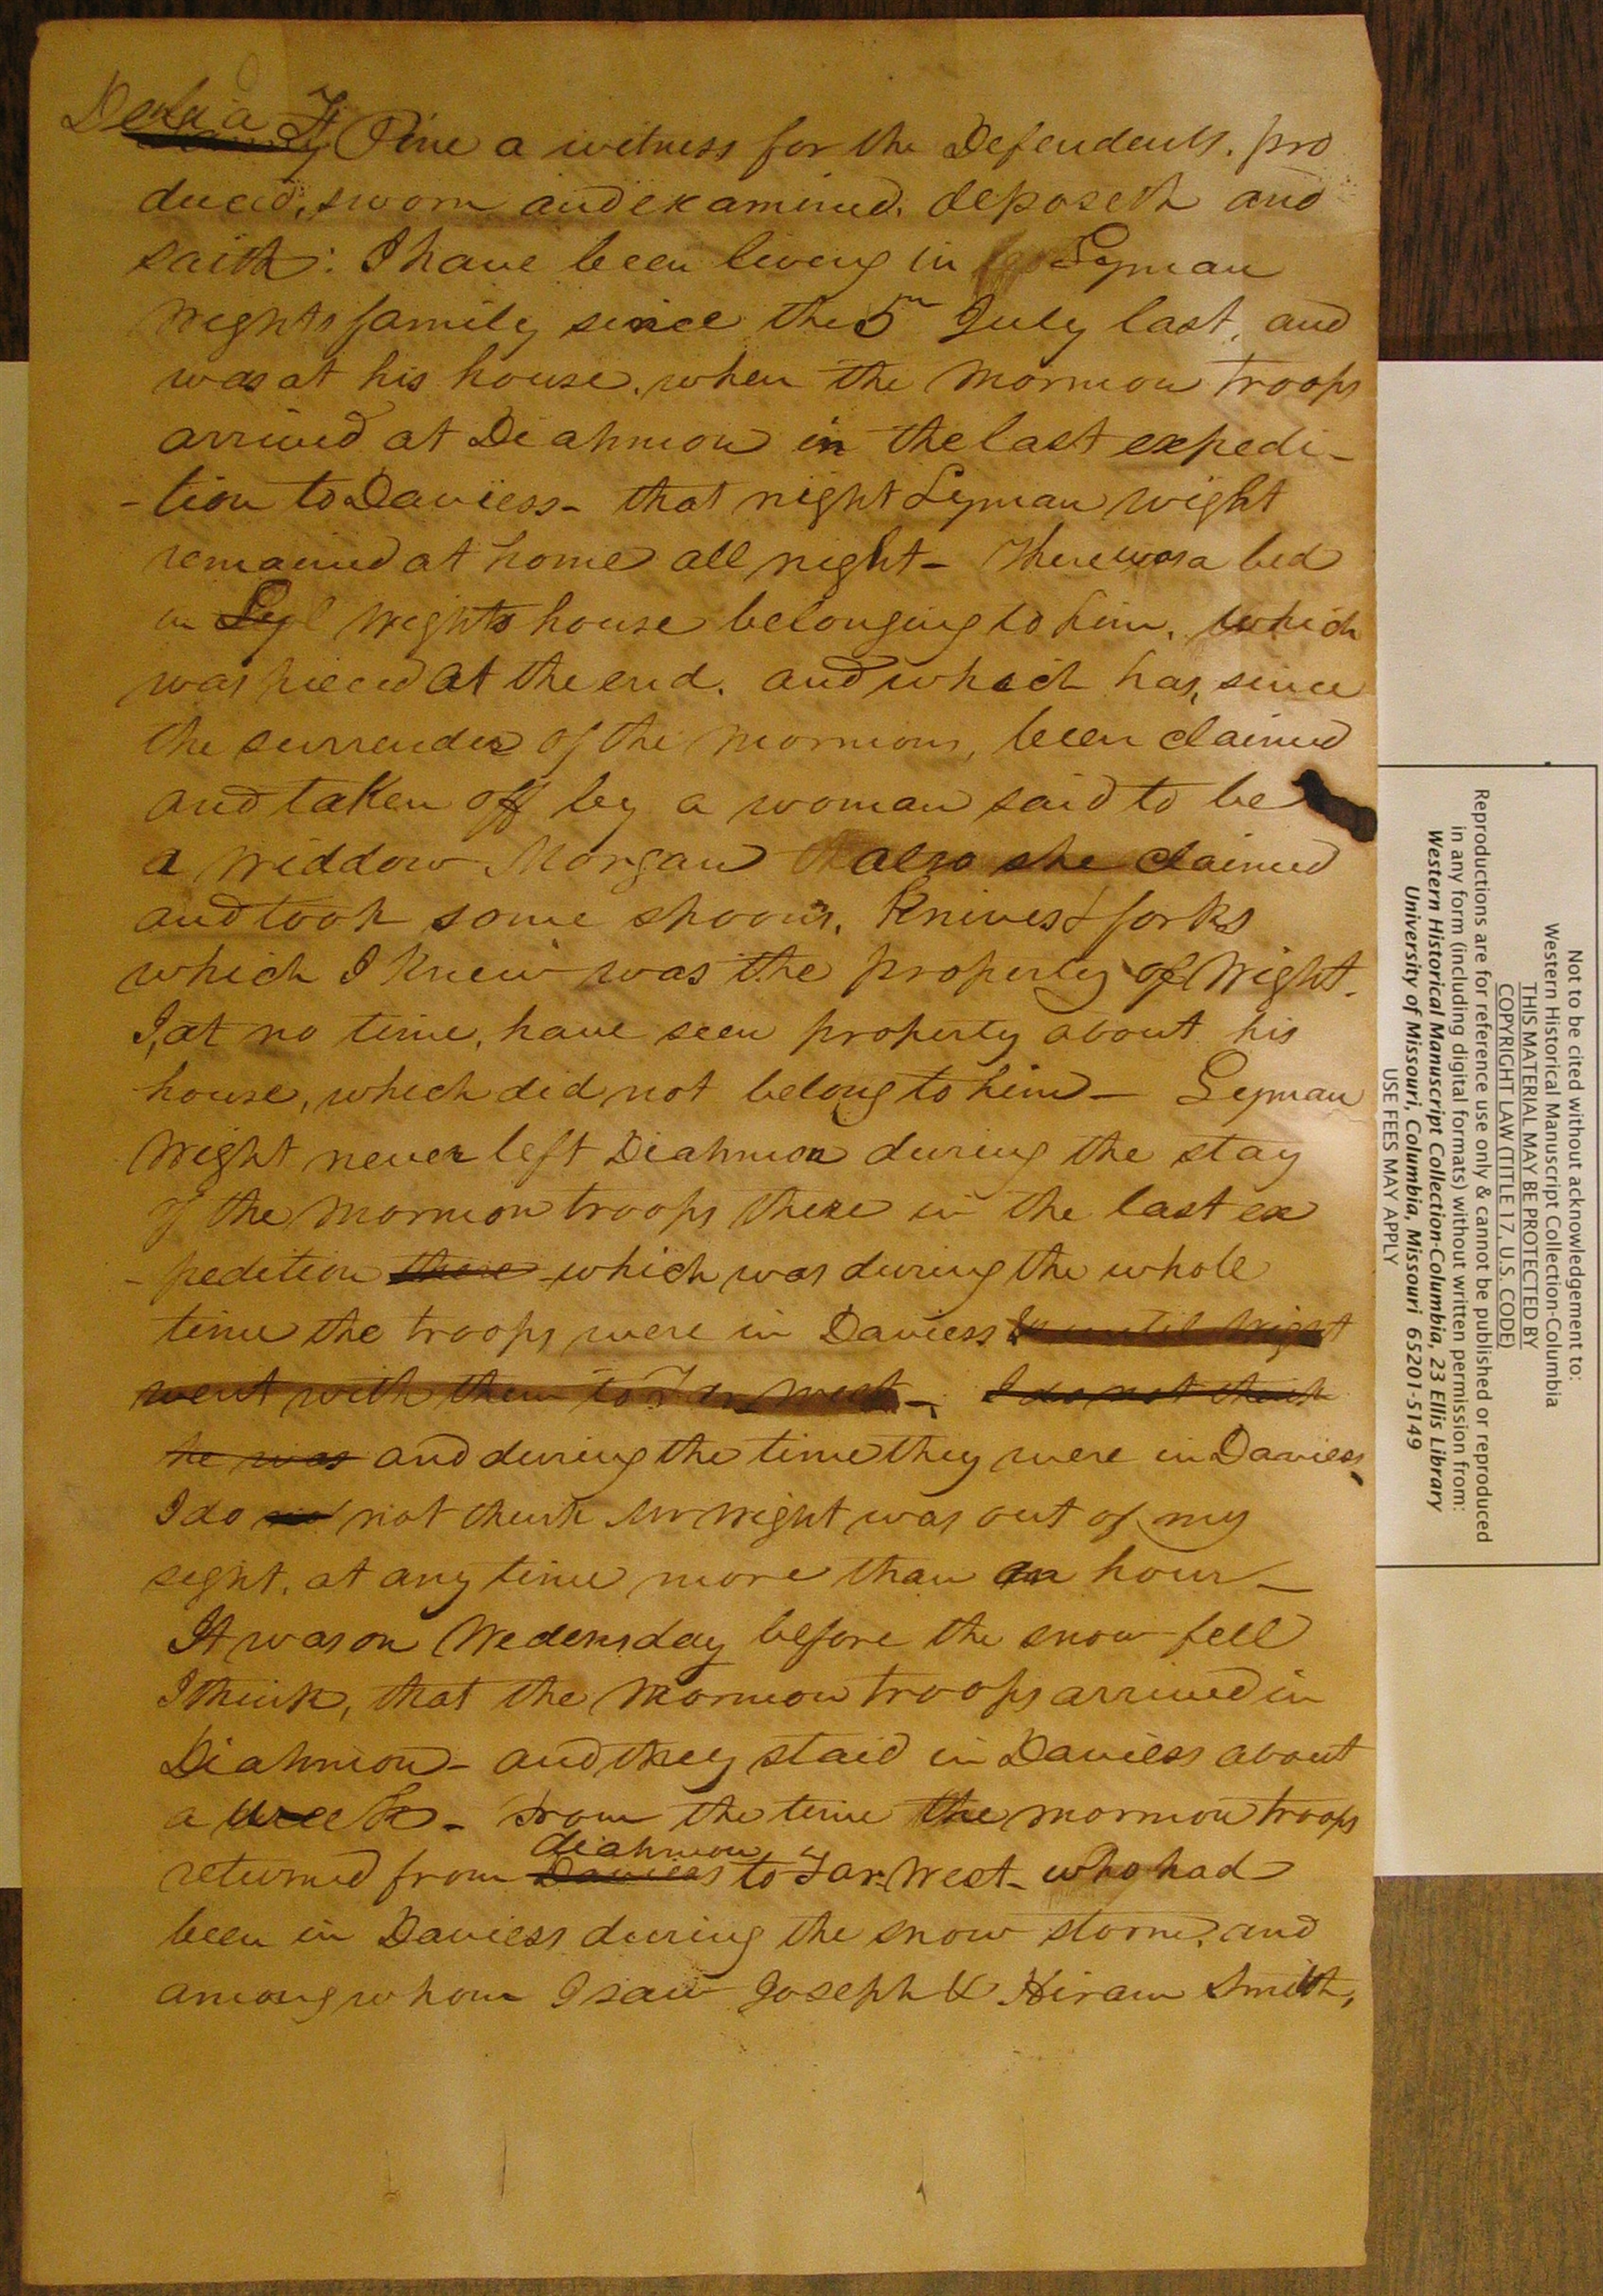 Delia F Pine a witness for the Defendents. pro
duced, sworn and examined, deposeth and
saith: I have been living in Lyman
Wights family since the 5th July last, and
was at his house, when the Mormon troops
arrived at Diahmon in the last expedi-
-tion to Daviess- that night Lyman Wight
remained at home all night- There was a bed
in Wights house belonging to him, which
was pieced at the end. and which has, since
the surrender of the Mormons, been claimed
and taken off by a woman said to be
a Widdow Morgan also she claimed
and took some spoons, Knives & forks
which I knew was the property of Wight.
I, at no time, have seen property about his
house, which did not belong to him- Lyman
Wight never left Diahmon during the stay
of the Mormon troops there in the last ex
-pedition there which was during the whole
time the troops were in Daviess until Wight
went with them to Far West-. I do not think
he was and during the time they were in Daviess
I do not think Mr Wight was out of my
sight, at any time more than an hour-
It was on Wedensday before the snow fell
I think, that the Mormon troops arrived in
Diahmon- and they staid in Daviess about
a week- From the time the mormon troops
diahmon
returned from Daviess to Far West- who had
been in Daviess during the snow storm, and
among whom I saw Joseph & Hiram Smith,
Not to be cited without acknowledgement to:
Western Historical Manuscript Collection-Columbia
THIS MATERIAL MAY BE PROTECTED BY
COPYRIGHT LAW (TITLE 17, U.S. CODE)
Reproductions are for reference use only & cannot be published or reproduced
in any form (including digital formats) without written permission from:
Western Historical Manuscript Collection-Columbia, 23 Ellis Library
University of Missouri, Columbia, Missouri 65201-5149
USE FEES MAY APPLY